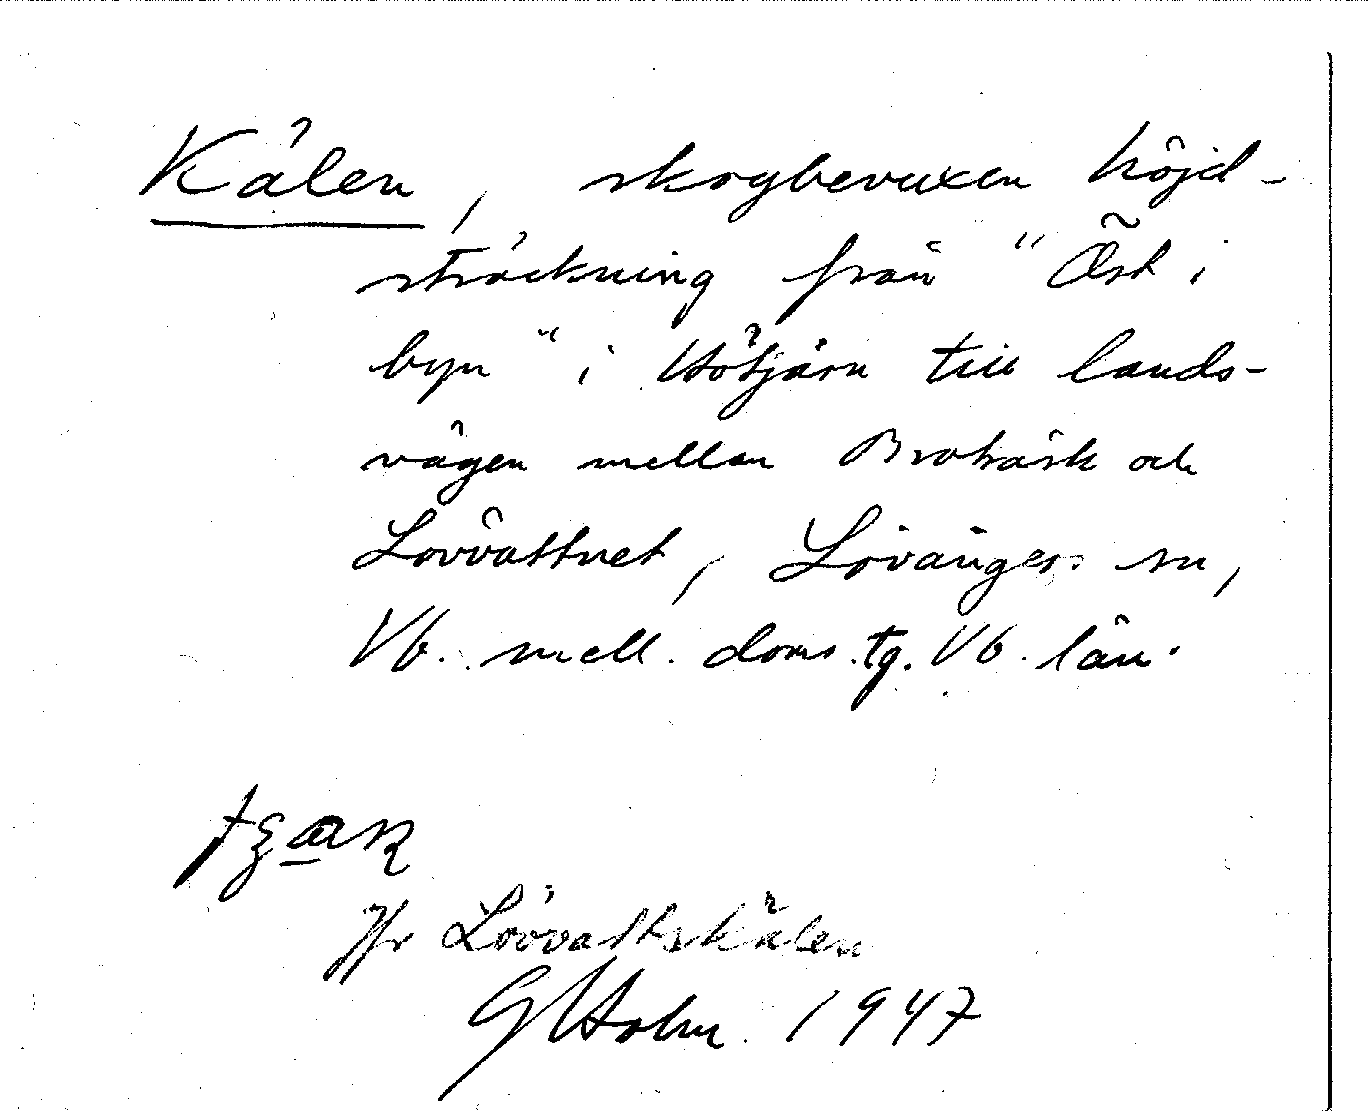 Kälen, skogbevuxen höjd-
sträckning från "Öst i
byn" i Hötjärn till lands-
vägen mellan Broträsk och
Lövvattnet, Lövångers sn,
Vb. mell. doms. tg. Vb. län.
Jfr Lövvattskälen
G Holm 1947